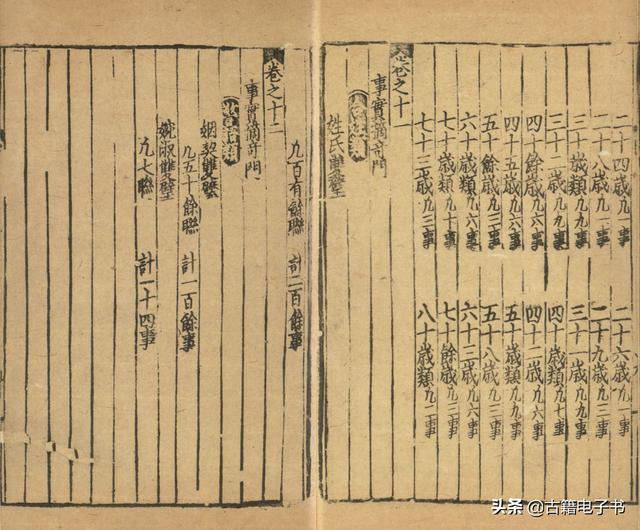 二十四歲凡一事 二十六歲凡一事
二十八歲凡一事 二十九歲凡三事
三十歲類凡九事 三十一歲凡二事
三十二歲凡九事 四十歲類凡十事
四十餘歲凡六事 四十二歲凡六事
四十五歲凡六事 五十歲類凡九事
五十餘歲凡五事 五十八歲凡三事
六十歲類凡六事 六十三歲凡六事
七十歲類凡十事 七十餘歲凡三事
七十三歲凡三事 八十歲類凡二事
卷之十一
事實摘奇門
姓氏雙璧
凡百有餘聯 計二百餘事
卷之十二
事實摘奇門
姻契雙璧
凡五十餘聯 計一百餘事
婉淑雙璧
凡七聯 計一十四事
头条 @古籍电子书